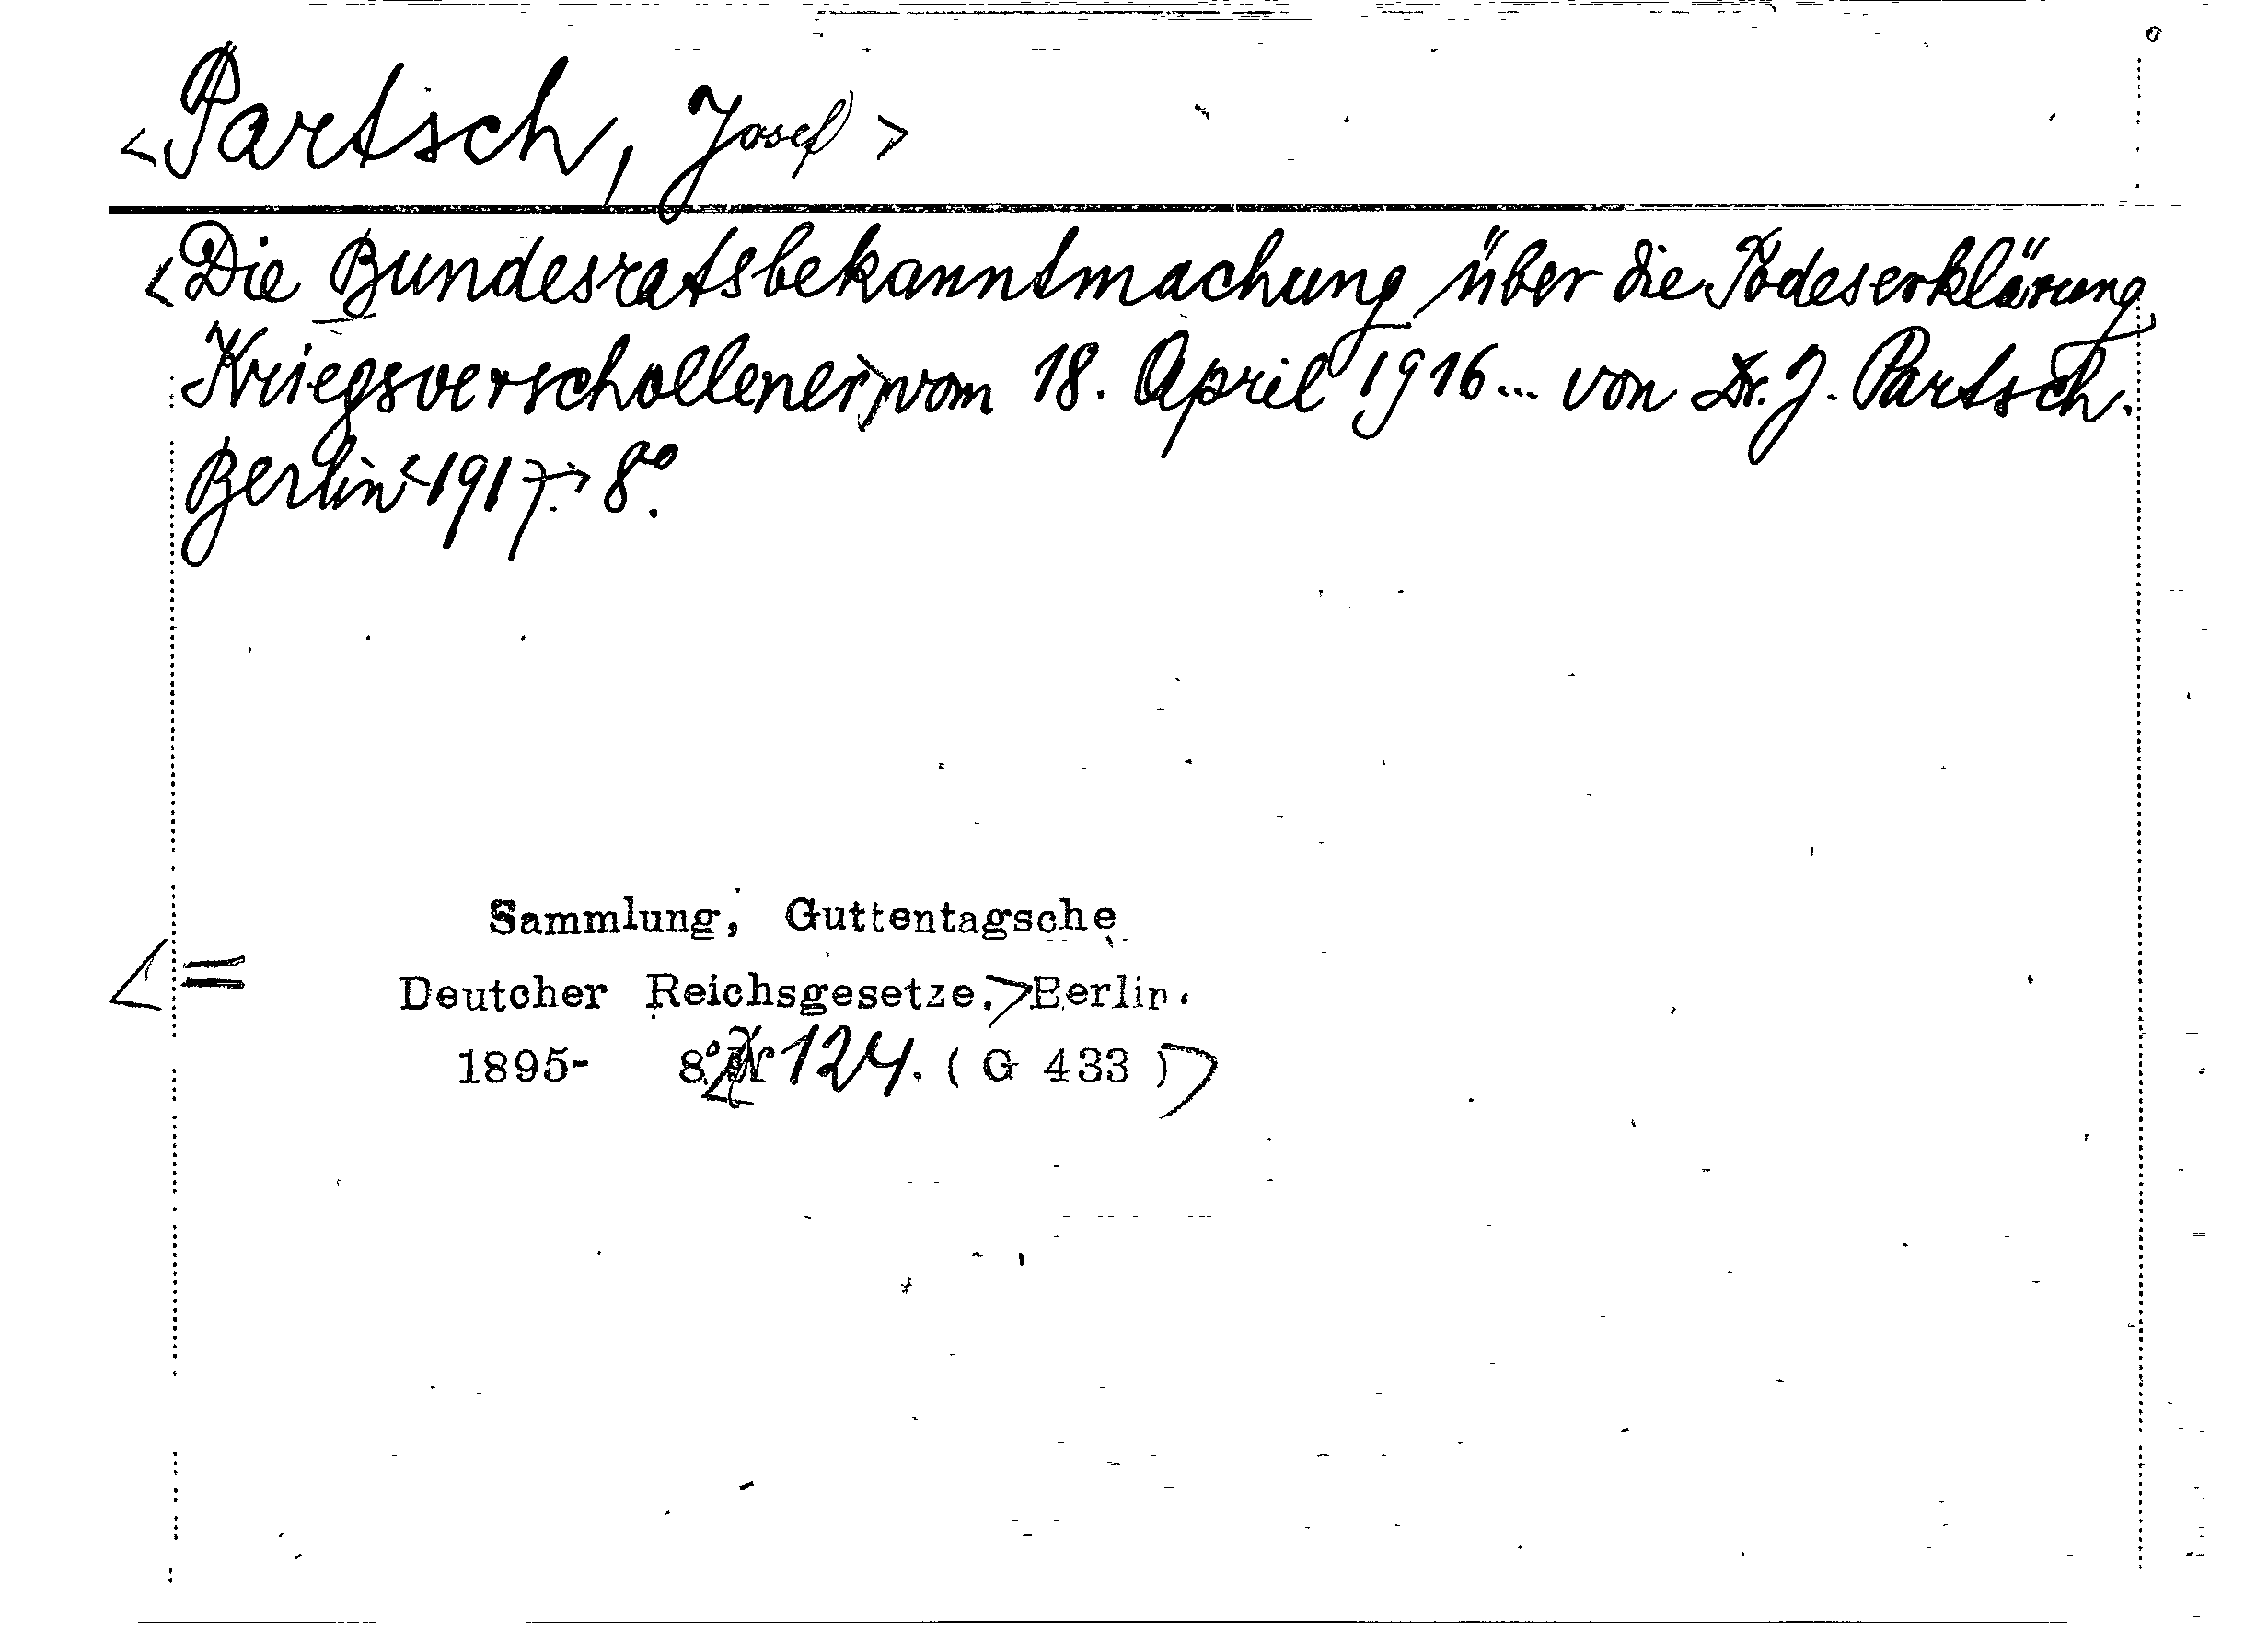 <Partsch, Josef>
<Die Bundesratsbekanntmachung über die Todeserklärung
Kriegsverschollener> vom 18. April 1916... von Dr. J. Partsch.
Berlin <1917.> 8°.
Sammlung, Guttentagsche
<= Deutcher Reichsgesetze.> Berlin.
1895- 8° < Nr 124. (G 433)>